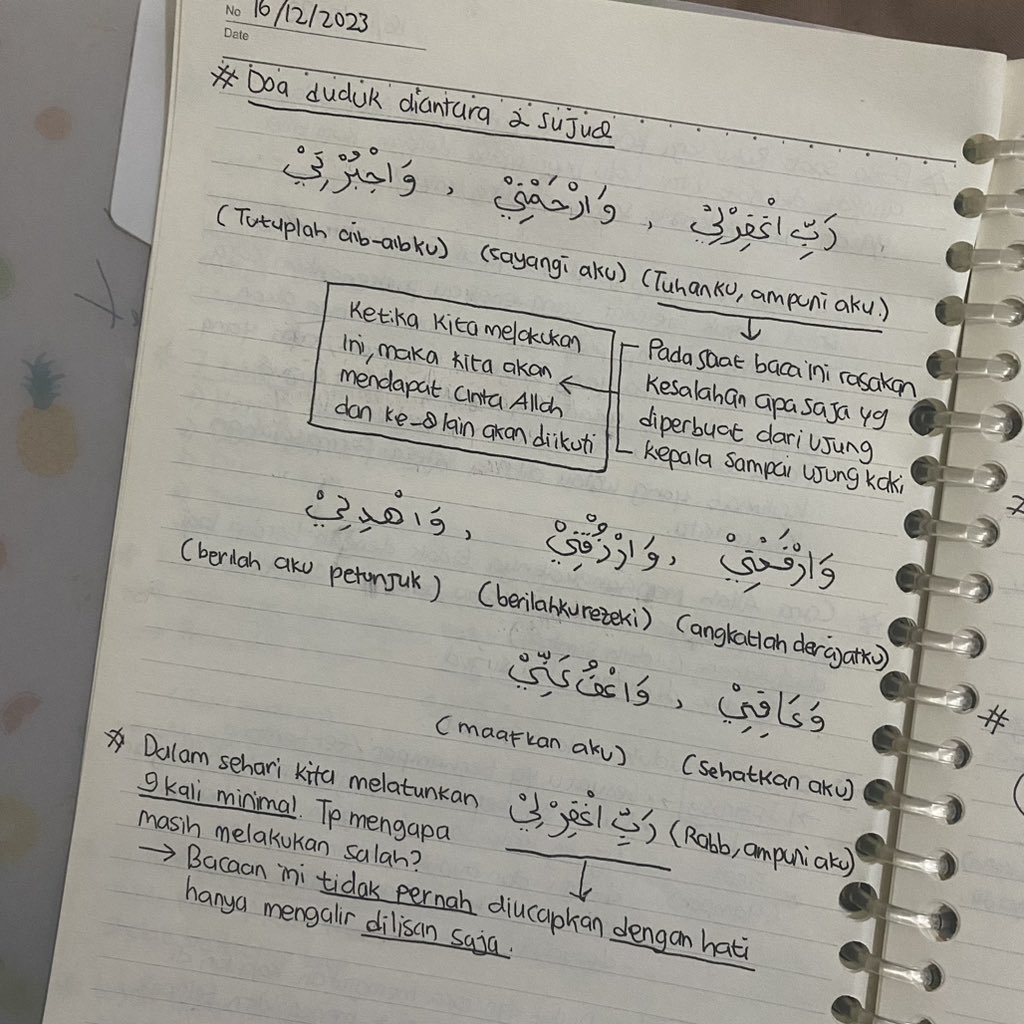 No 16/12/2023
Date
# Doa duduk diantara 2 sujud
رَبِّ اغْفِرْلِيْ ، وَارْحَمْنِيْ ، وَاجْبُرْنِيْ
(Tutuplah aib-aibku) (sayangi aku) (Tuhanku, ampuni aku.)
Ketika kita melakukan
ini, maka kita akan
mendapat cinta Allah
dan ke-8 lain akan diikuti
Pada saat baca ini rasakan
kesalahan apa saja yg
diperbuat dari ujung
kepala sampai ujung kaki
وَارْفَعْنِيْ ، وَارْزُقْنِيْ ، وَاهْدِنِيْ
(berilah aku petunjuk) (berilahku rezeki) (angkatlah derajatku)
وَعَافِنِيْ ، وَاعْفُ عَنِّيْ
(maafkan aku) (Sehatkan aku)
* Dalam sehari kita melatunkan
9 kali minimal. Tp mengapa
رَبِّ اغْفِرْلِيْ (Rabb, ampuni aku)
masih melakukan salah?
→ Bacaan ini tidak pernah diucapkan dengan hati
hanya mengalir dilisan saja.
#